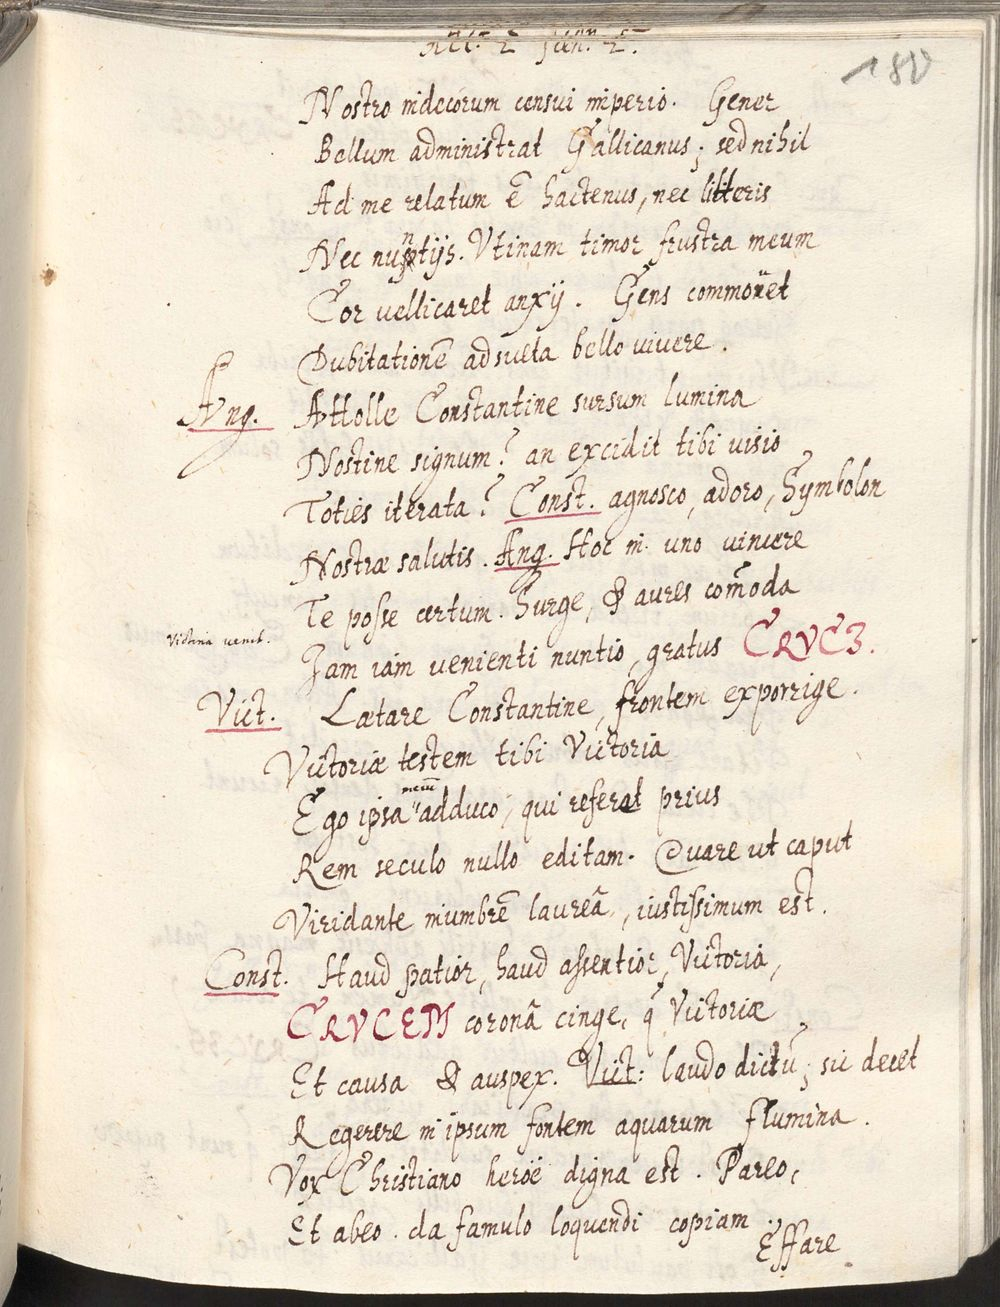 Act. 2 Scen. 2.
180
Nostro indecorum censui imperio. Gener
Bellum administrat Gallicanus; sed nihil
Ad me relatum ē hactenus, nec litteris
Nec nuntijs. Vtinam timor frustra meum
Cor vellicaret anxij. Gens commouet
Dubitationē adsueta bello viuere.
Ang. Attolle Constantine sursum lumina
Nostine signum? an excidit tibi visio
Toties iterata? Const. agnosco, adoro, Symbolon
Nostræ salutis. Ang. Hoc in uno vincere
Te posse certum. Surge, & aures com̄oda
Victoria venit.
Jam iam venienti nuntio, gratus CRVCI.
Vict. Lætare Constantine, frontem exporrige.
Victoriæ testem tibi Victoria
Ego ipsa mecū adduco, qui referat prius
Rem seculo nullo editam. Quare ut caput
Viridante inumbrē laureā, iustissimum est.
Const. Haud patior, haud assentior, Victoria,
CRVCEM coronā cinge, q̄ Victoriæ
Et causa & auspex. Vict: laudo dictū; sic decet
Regerere in ipsum fontem aquarum flumina.
Vox Christiano heroë digna est. Pareo,
Et abeo. da famulo loquendi copiam.
Effare